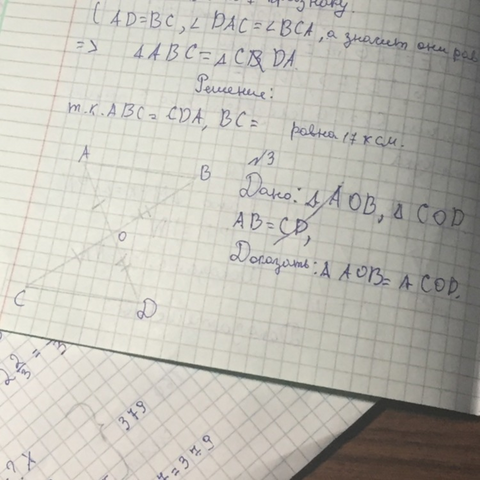 ( AD=BC, ∠ DAC=∠BCA, а значит они рав
=> ΔABC=ΔCDA
Решение:
т.к. ABC = CDA, BC = равна 17 см.
№3
Дано: Δ AOB, Δ COD
AB=CD,
Доказать: Δ AOB= Δ COD.
A
B
O
C
D
379
=379
? X